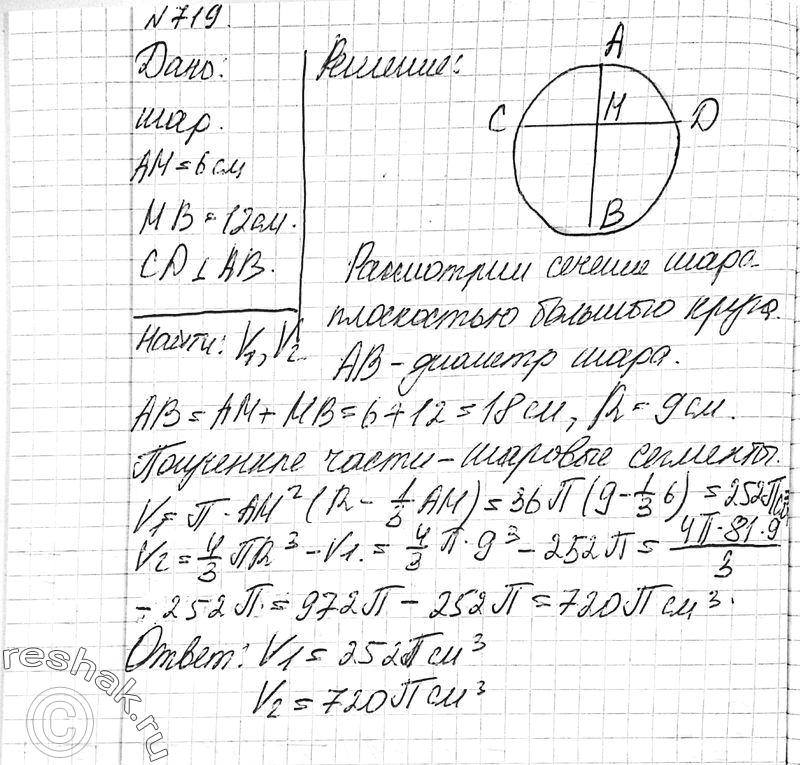 N719.
Дано:
шар.
AM = 6 см
MB = 12 см.
CD ⊥ AB.
Найти: V₁, V₂
Решение:
A
C
M
D
B
Рассмотрим сечение шара
плоскостью большого круга.
AB - диаметр шара.
AB = AM + MB = 6 + 12 = 18 см, R = 9 см.
Полученные части - шаровые сегменты.
V₁ = П · AM² (R - 1/3 AM) = 36П (9 - 1/3 6) = 252П см³
V₂ = 4/3 ПR³ - V₁ = 4/3 П · 9³ - 252П = 4П · 81 · 9 / 3
- 252П = 972П - 252П = 720П см³.
Ответ: V₁ = 252П см³
V₂ = 720П см³
© reshak.ru